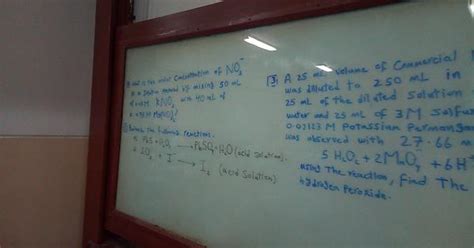 what is the molar concentration of NO3-
in a solution prepared by mixing 50 mL
KNO3 with 40 mL of
Balance the following reactions.
PbS + H2O2 → PbSO4 + H2O (acid solution)
I- → I2 (acid solution)
[3] A 25 mL volume of commercial
was diluted to 250 mL in
25 mL of the diluted solution
water and 25 mL of 3M Sulfu
M Potassium Permang
was observed with 27.66 m
5 H2O2 + 2MnO4- + 6H+
using the reaction, find the
hydrogen peroxide.